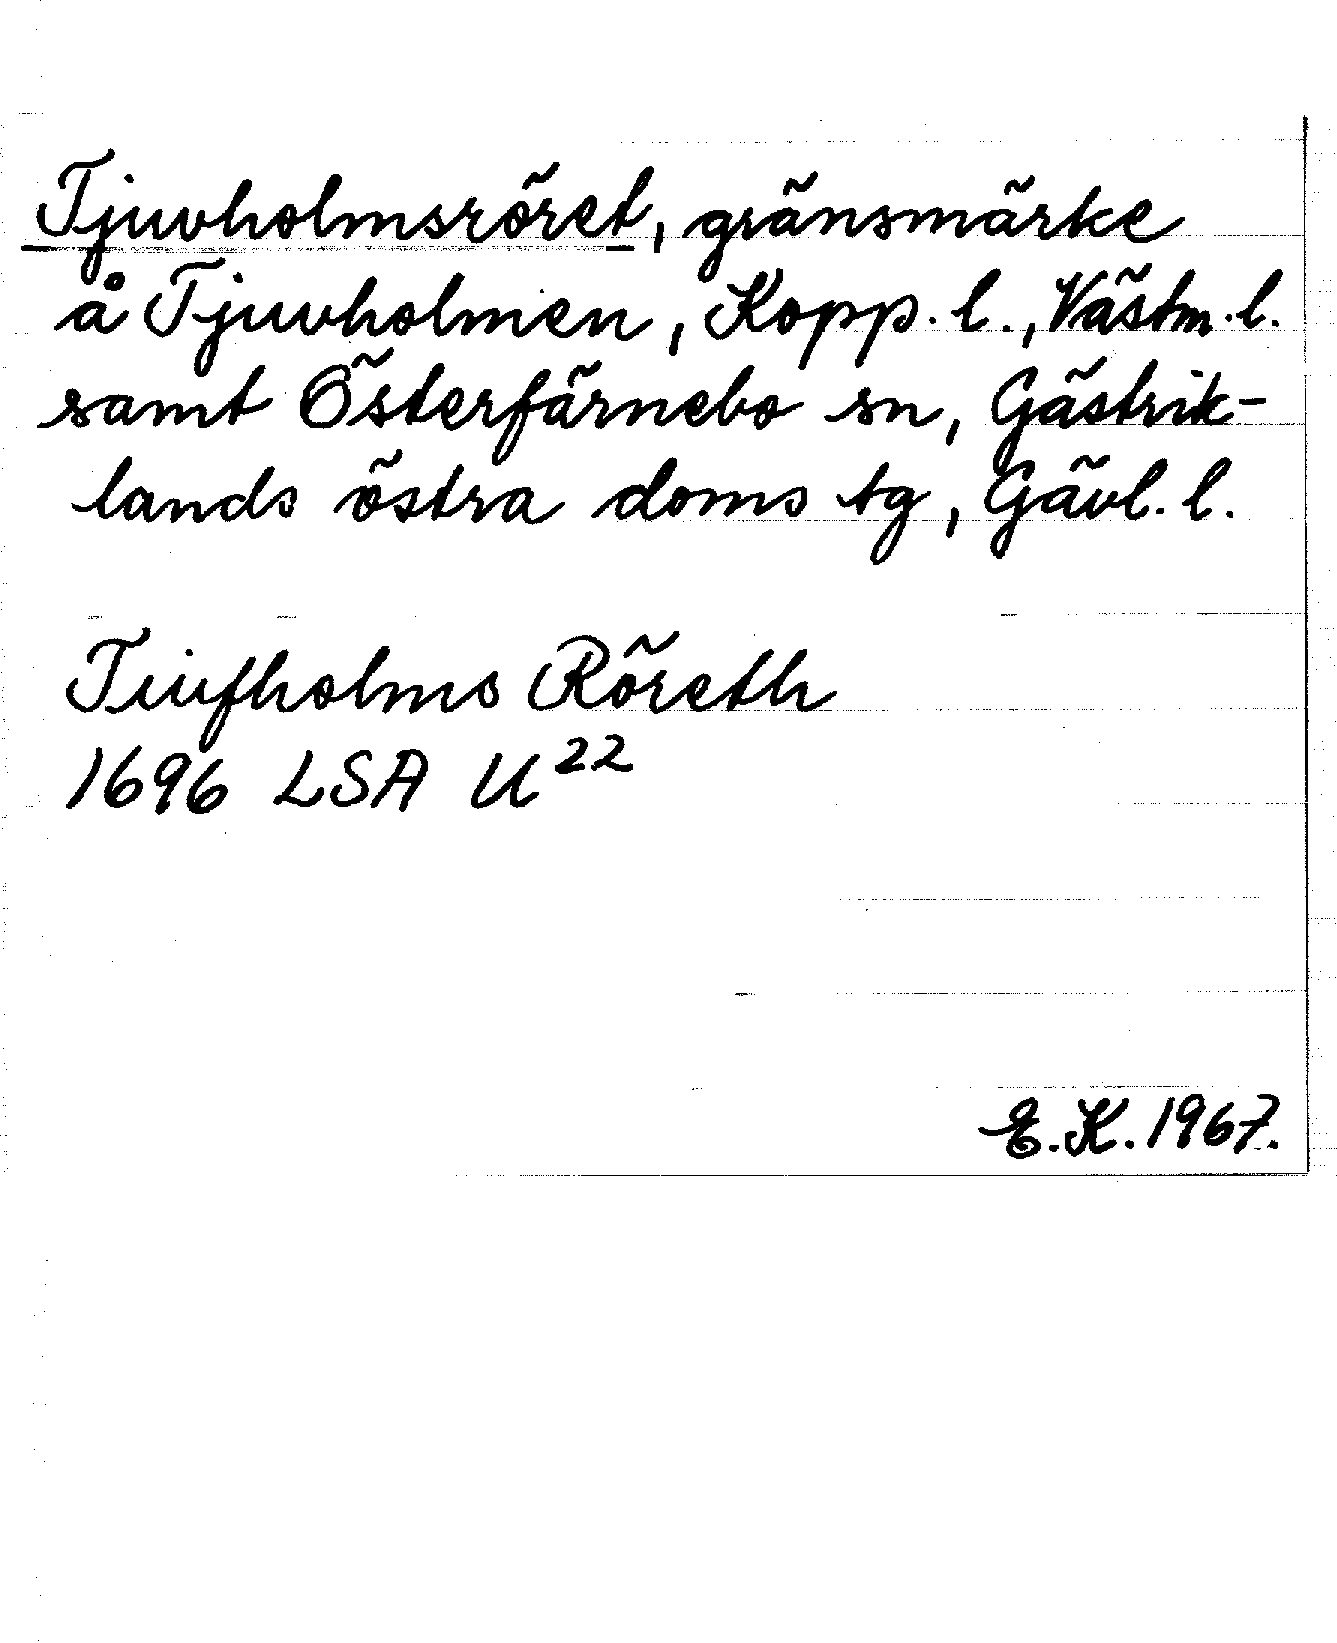 Tjuvholmsröret, gränsmärke
å Tjuvholmen, Kopp. l., Västm. l.
samt Österfärnebo sn, Gästrik-
lands östra doms tg, Gävl. l.
Tiufholms Röreth
1696 LSA U²²
E.K. 1967.